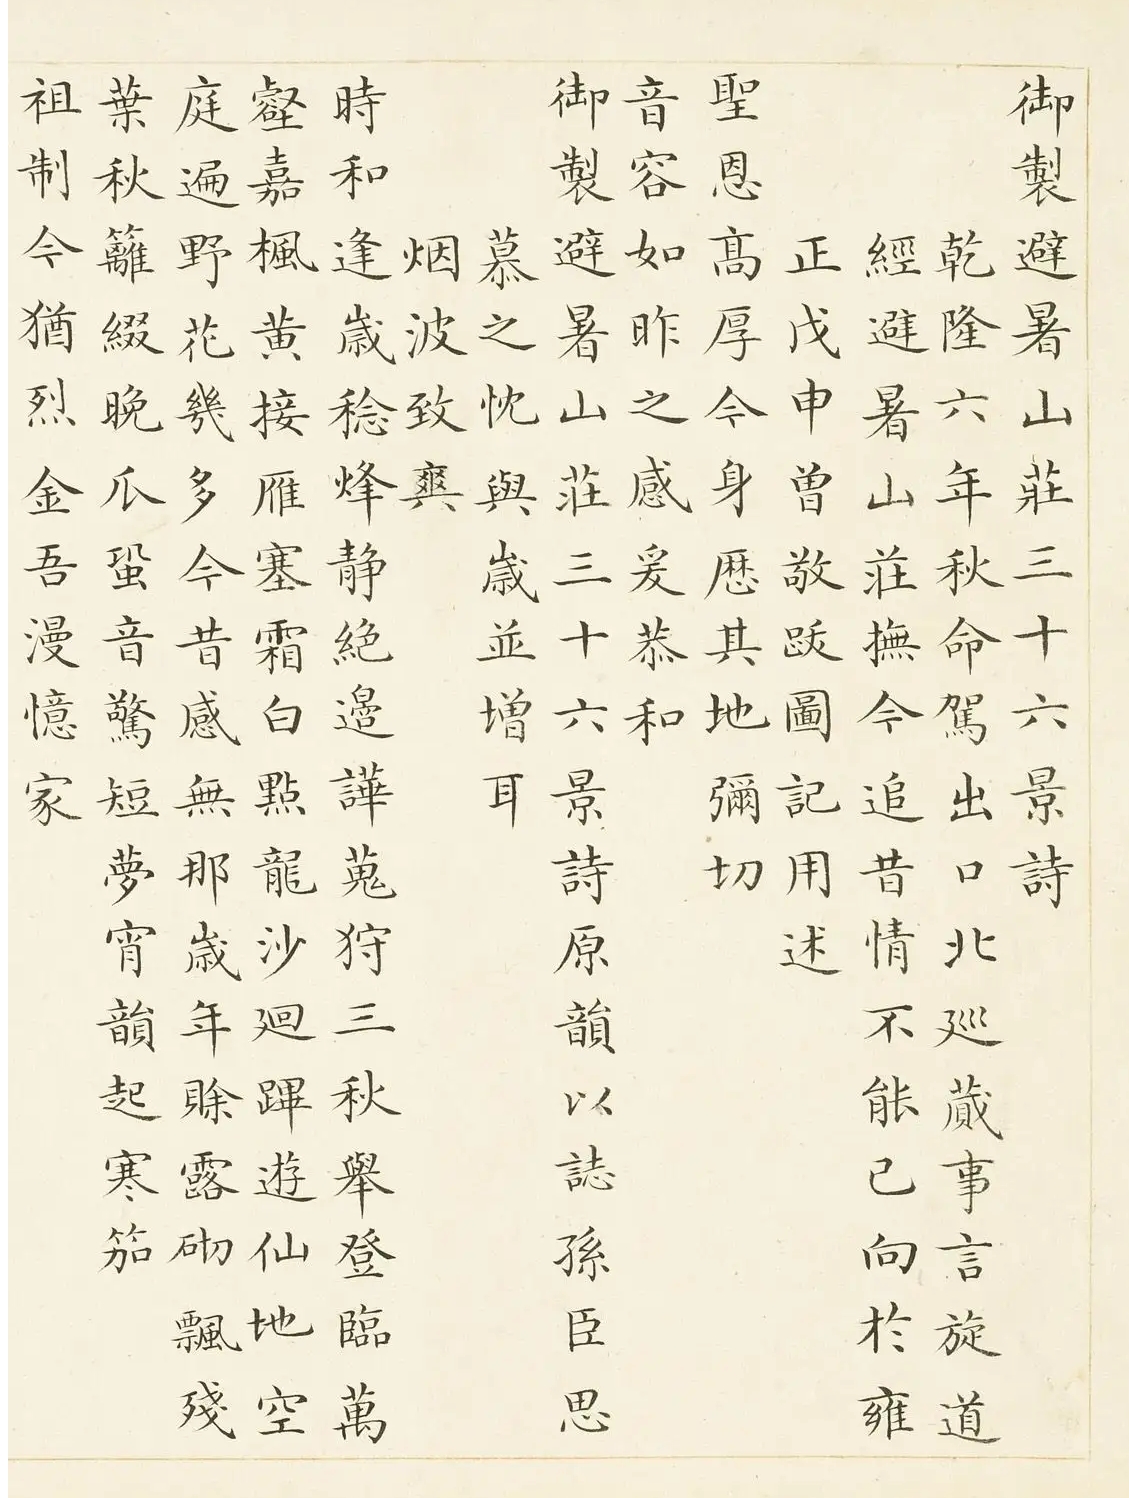 御製避暑山莊三十六景詩
乾隆六年秋命駕出口北巡蕆事言旋道
經避暑山莊撫今追昔情不能已向於雍
正戊申曽敬跋圖記用述
聖恩髙厚今身歷其地彌切
音容如昨之感爰恭和
御製避暑山莊三十六景詩原韻以誌孫臣思
慕之忱與歳並增耳
烟波致爽
時和逢歳稔烽静絶邉譁蒐狩三秋舉登臨萬
壑嘉楓黄接雁塞霜白點龍沙廻蹕遊仙地空
庭遍野花幾多今昔感無那歳年賒露砌飄殘
葉秋籬綴晚瓜蛩音驚短夢宵韻起寒笳
祖制今猶烈金吾漫憶家